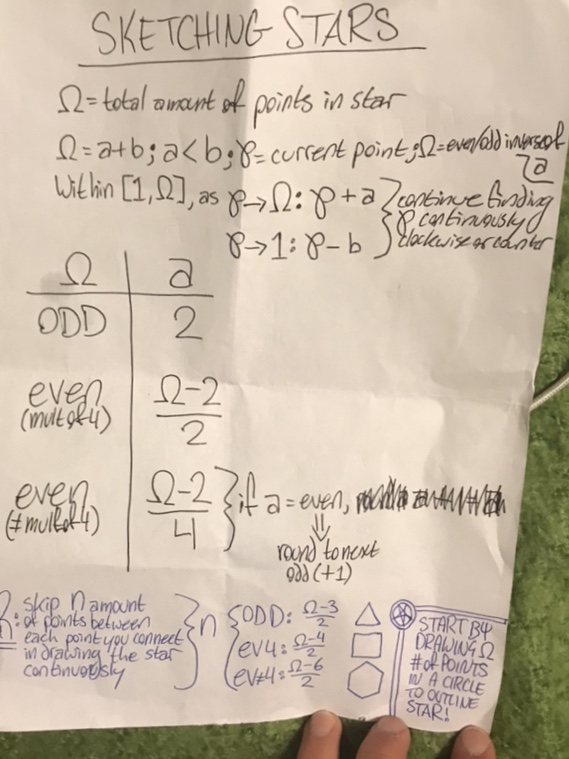 SKETCHING STARS
Ω = total amount of points in star
Ω = a+b; a<b; φ = current point; Ω = even/odd inverse of a
Within [1, Ω], as φ → Ω: φ + a } continue finding
φ continuously
φ → 1: φ − b } clockwise or counter
Ω | a
ODD | 2
even (mult of 4) | Ω−2 / 2
even (≠mult of 4) | Ω−2 / 4 } if a = even,
⇓
round to next
odd (+1)
: skip n amount
of points between
each point you connect
in drawing the star
continuously
} n { ODD: Ω−3 / 2
ev4: Ω−4 / 2
ev≠4: Ω−6 / 2
START BY
DRAWING Ω
# of POINTS
IN A CIRCLE
TO OUTLINE
STAR!